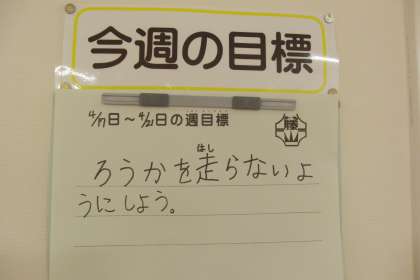 今週の目標
4/17日～4/21日の週目標
ろうかを走らないよ
うにしよう。
はし